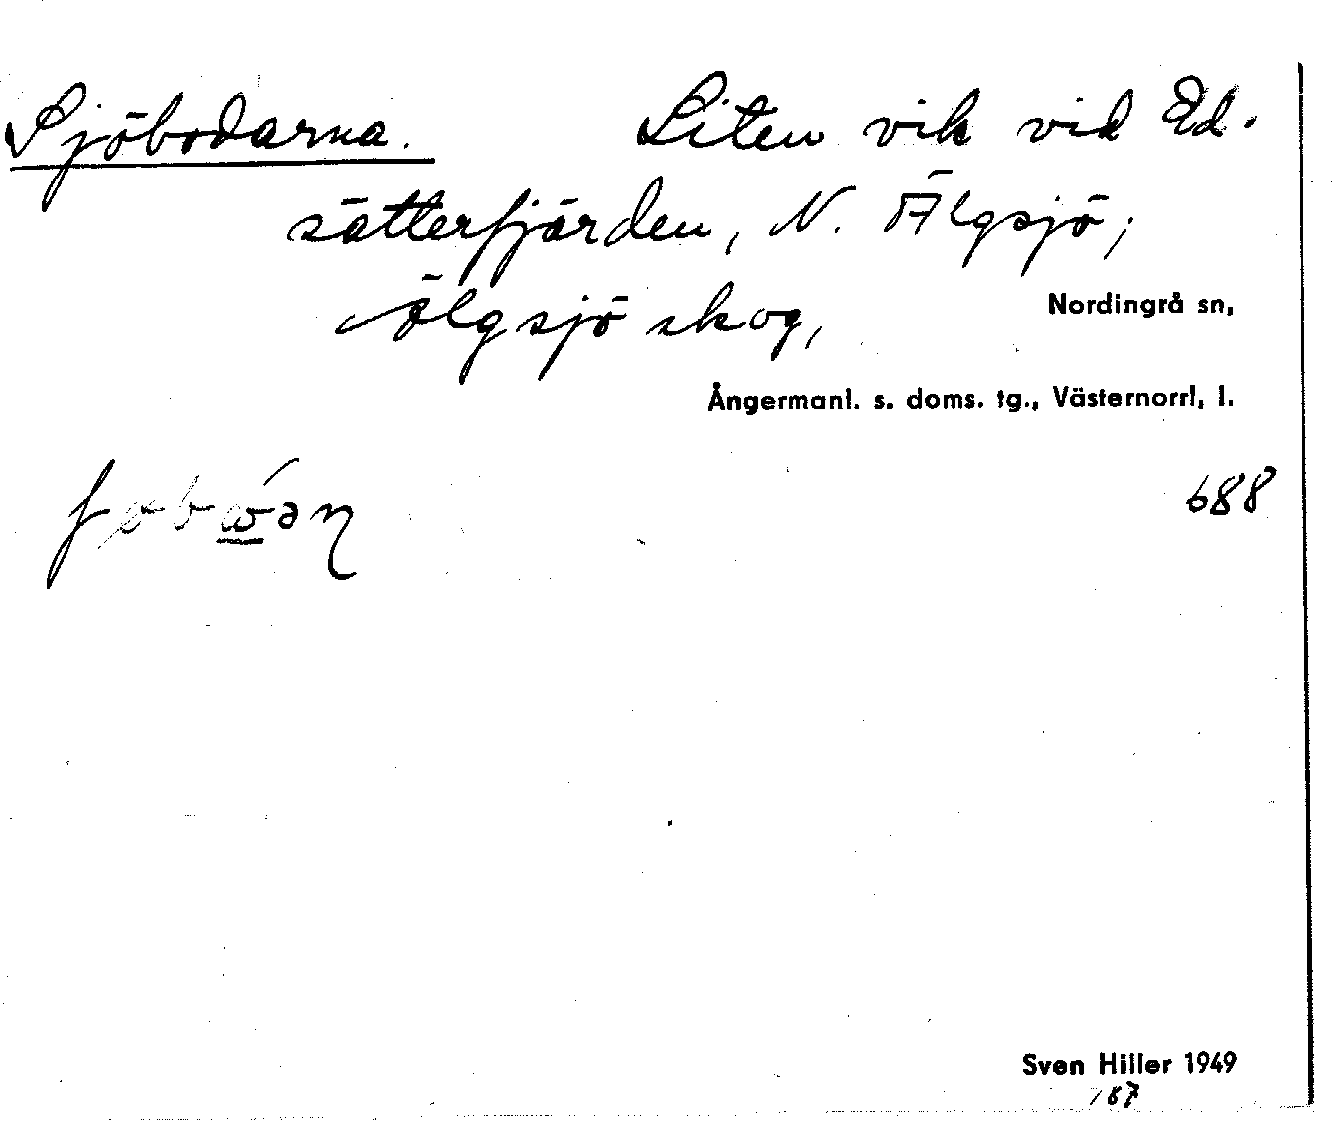 Sjöbodarna. Liten vik vid Ed-
sätterfjärden, N. Älgsjö;
Älgsjö skog,
Nordingrå sn,
Ångermanl. s. doms. tg., Västernorrl. l.
688
Sven Hiller 1949